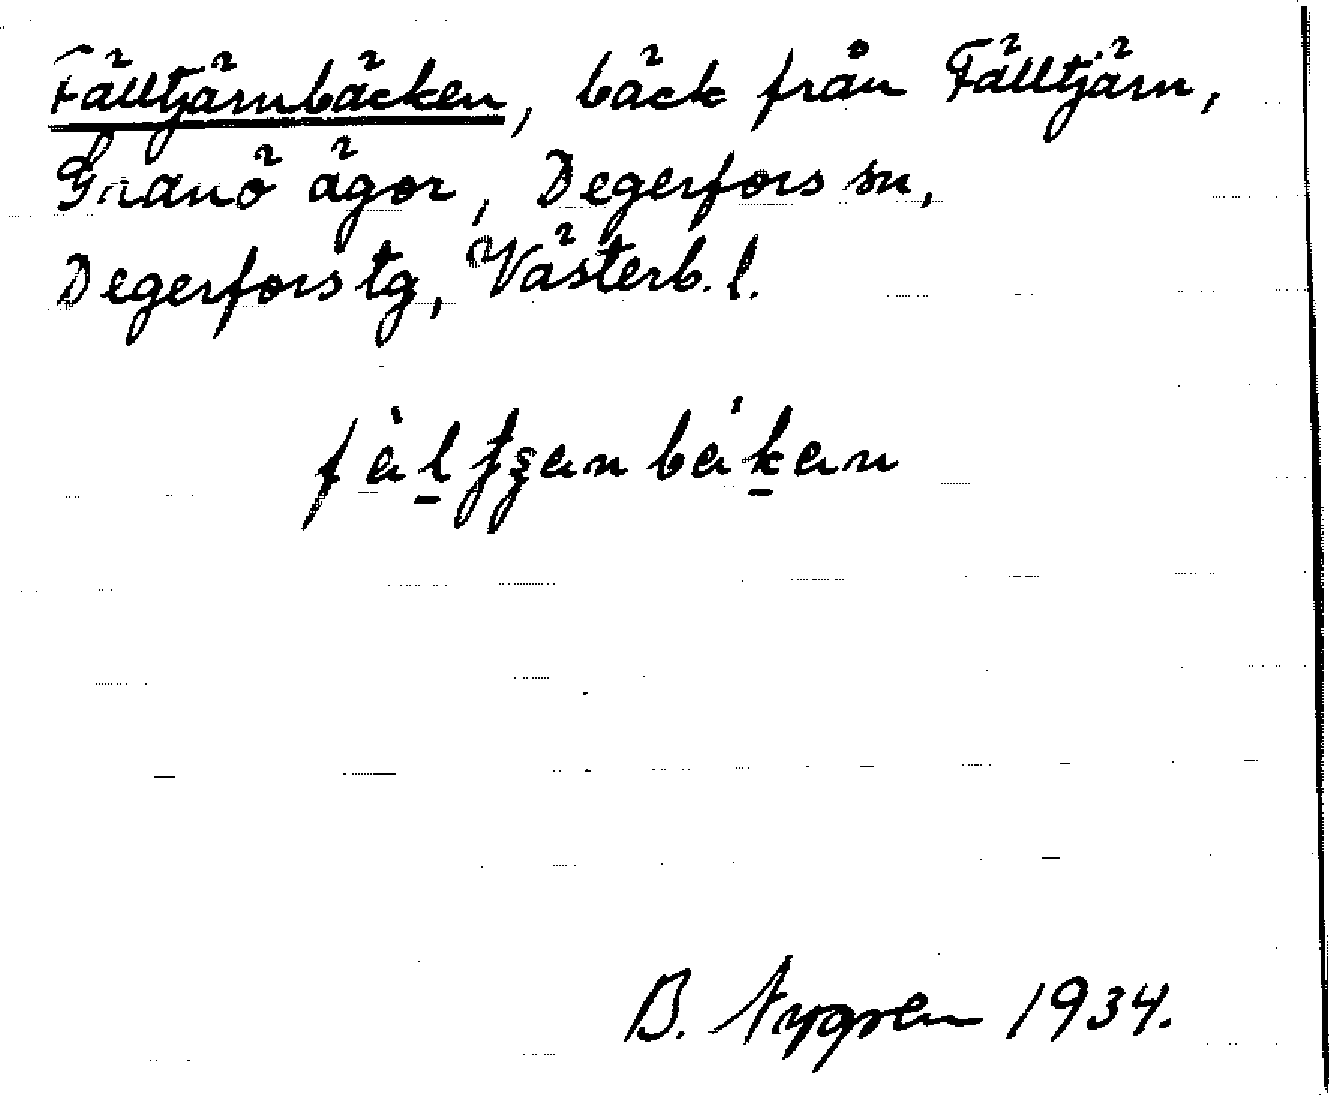 Fälltjärnbäcken, bäck från Fälltjärn,
Granö ägor, Degerfors sn,
Degerfors tg, Västerb. l.
B. Nygren 1934.